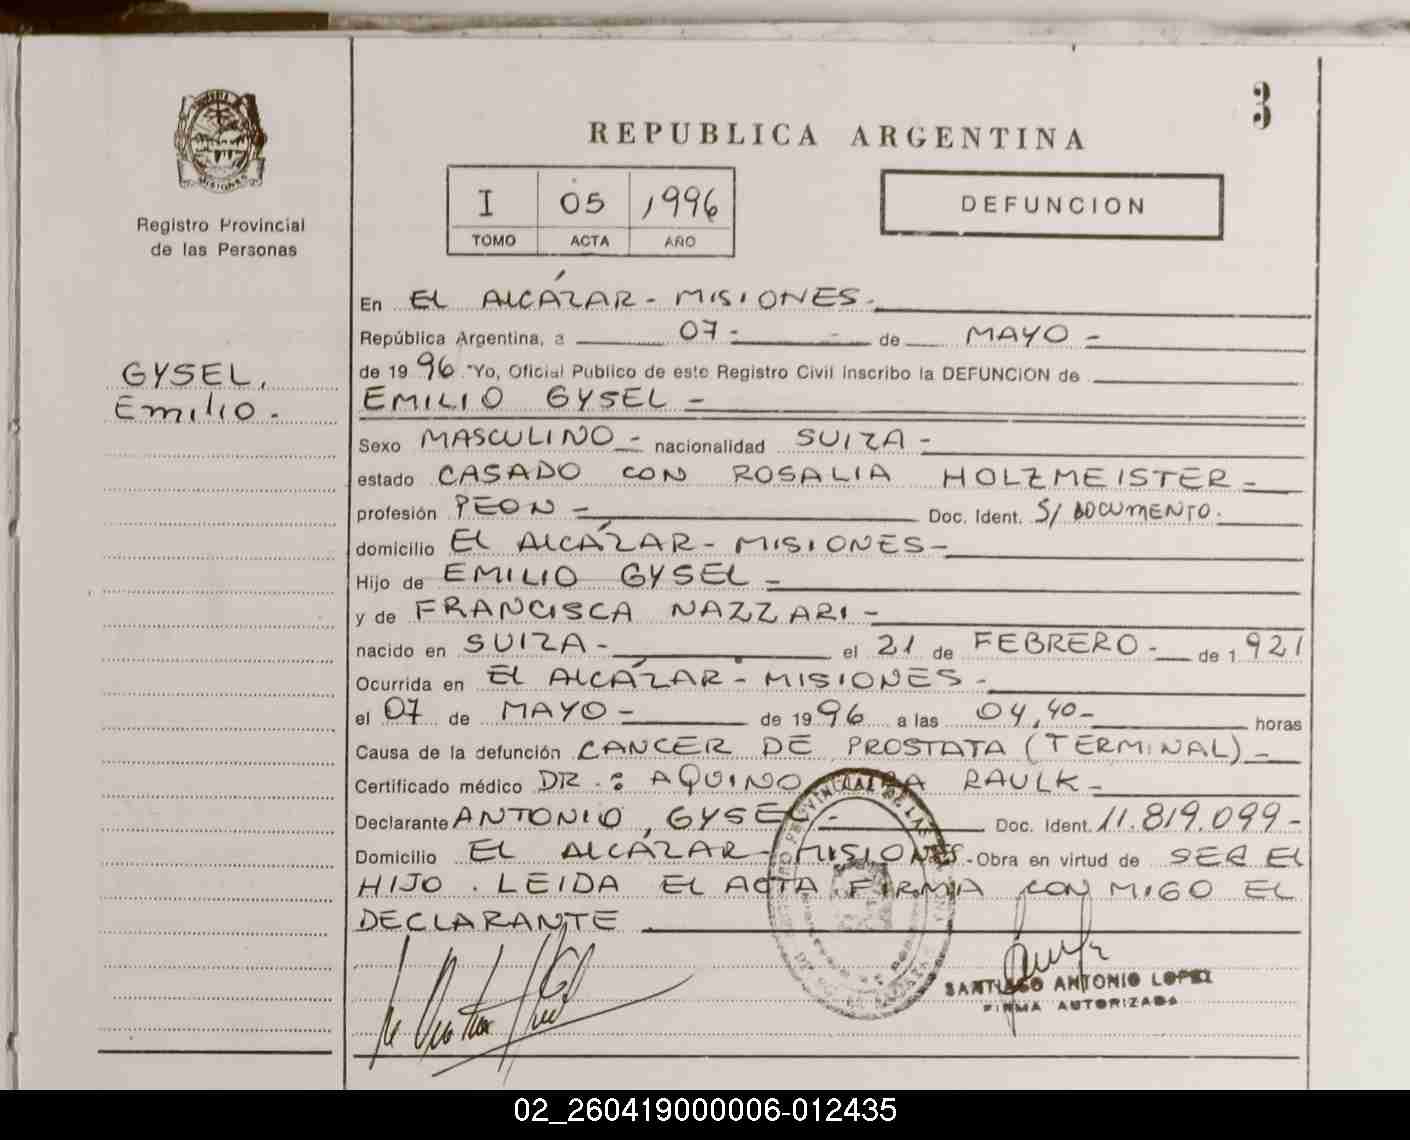 3
REPUBLICA ARGENTINA
I 05 1996
TOMO ACTA AÑO
DEFUNCION
MISIONES
Registro Provincial
de las Personas
GYSEL,
Emilio -
En EL ALCÁZAR - MISIONES -
República Argentina, a 07 - de MAYO -
de 19 96 . Yo, Oficial Publico de este Registro Civil inscribo la DEFUNCION de
EMILIO GYSEL -
Sexo MASCULINO - nacionalidad SUIZA -
estado CASADO CON ROSALIA HOLZMEISTER -
profesión PEON - Doc. Ident. S/ DOCUMENTO.
domicilio EL ALCÁZAR - MISIONES -
Hijo de EMILIO GYSEL -
y de FRANCISCA NAZZARI -
nacido en SUIZA - el 21 de FEBRERO - de 1 921
Ocurrida en EL ALCÁZAR - MISIONES -
el 07 de MAYO - de 19 96 a las 04,40 - horas
Causa de la defunción CANCER DE PROSTATA (TERMINAL) -
Certificado médico DR.: AQUINO RAULK -
Declarante ANTONIO, GYSEL - Doc. Ident. 11.819.099 -
Domicilio EL ALCÁZAR - MISIONES - Obra en virtud de SER EL
HIJO . LEIDA EL ACTA FIRMA CON MIGO EL
DECLARANTE
SANTIAGO ANTONIO LOPEZ
FIRMA AUTORIZADA
02_260419000006-012435